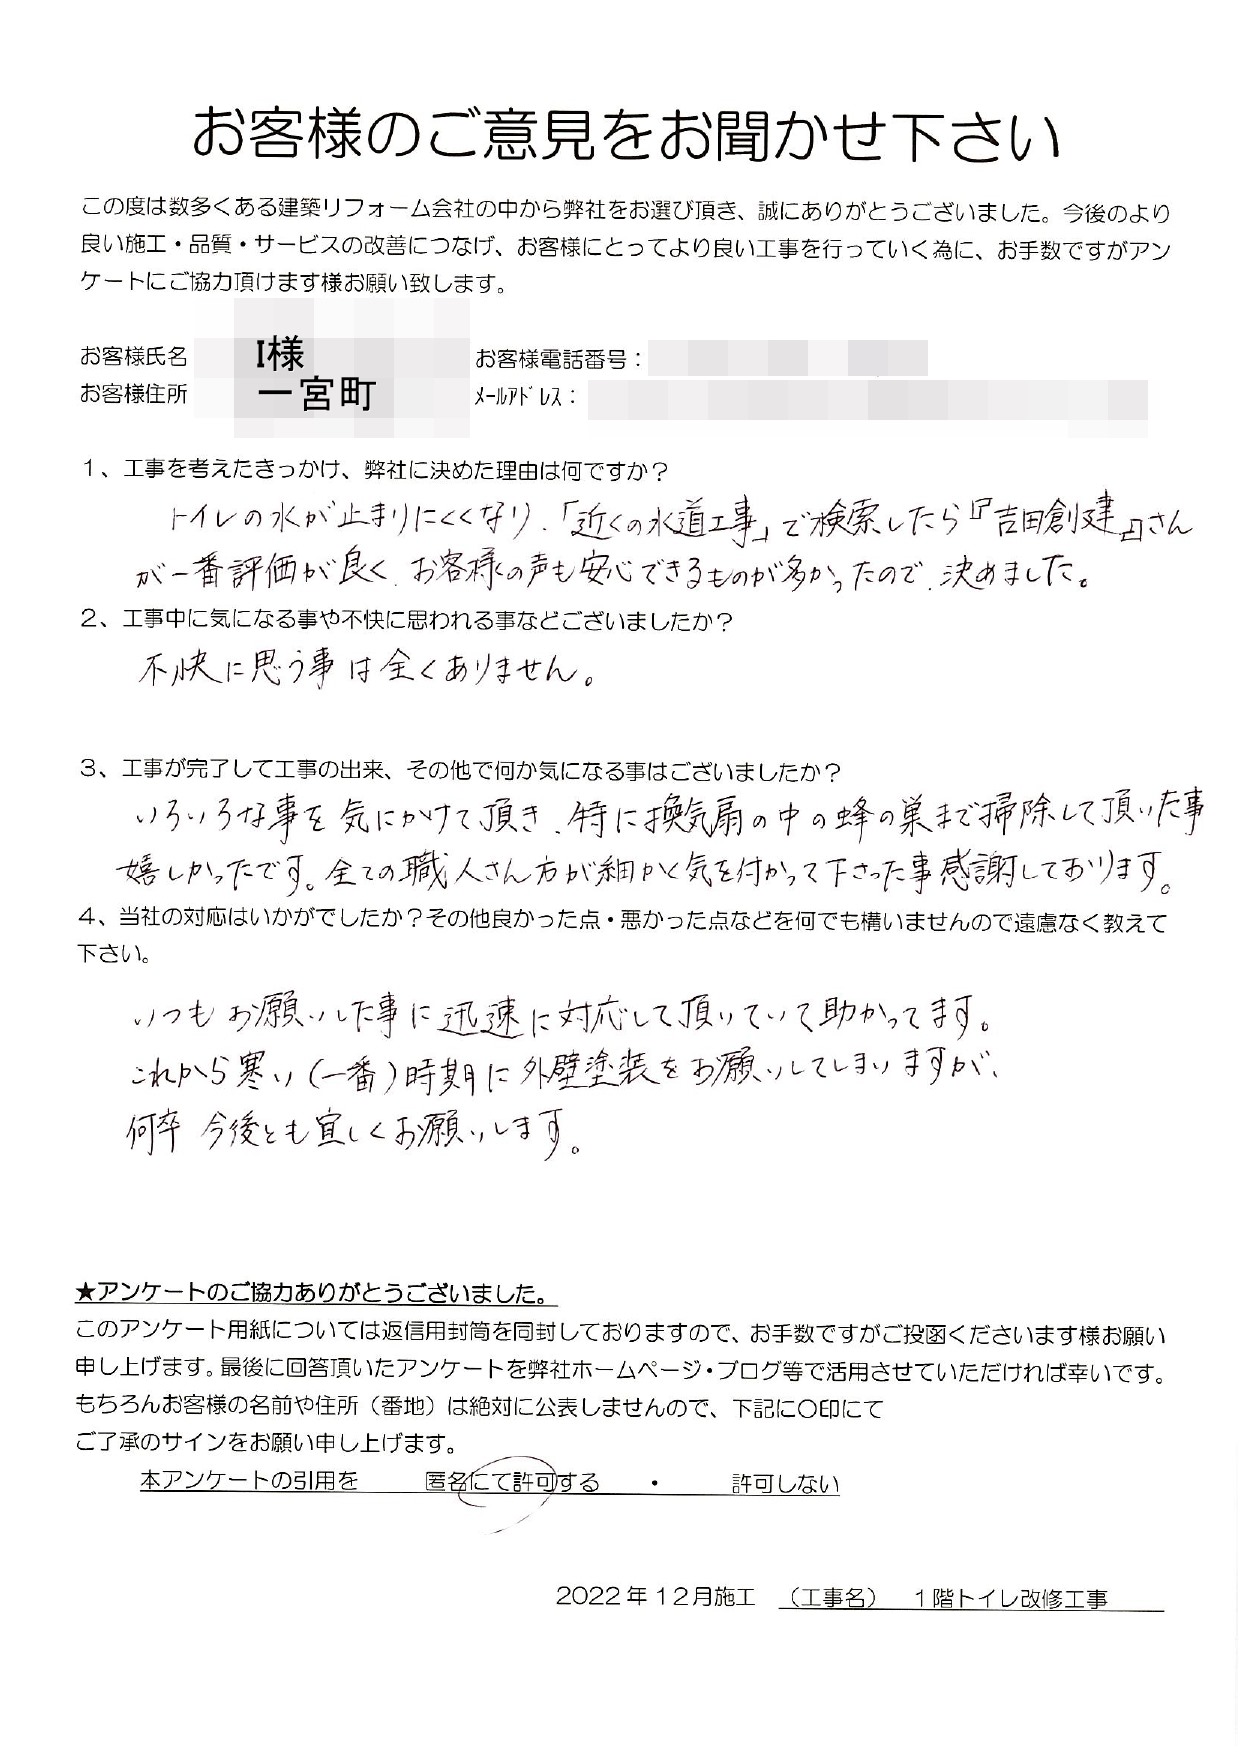 お客様のご意見をお聞かせ下さい
この度は数多くある建築リフォーム会社の中から弊社をお選び頂き、誠にありがとうございました。今後のより
良い施工・品質・サービスの改善につなげ、お客様にとってより良い工事を行っていく為に、お手数ですがアン
ケートにご協力頂けます様お願い致します。
お客様氏名 I様 お客様電話番号：
お客様住所 一宮町 ﾒｰﾙｱﾄﾞﾚｽ：
１、工事を考えたきっかけ、弊社に決めた理由は何ですか？
トイレの水が止まりにくくなり、「近くの水道工事」で検索したら『吉田創建』さん
が一番評価が良く、お客様の声も安心できるものが多かったので、決めました。
２、工事中に気になる事や不快に思われる事などございましたか？
不快に思う事は全くありません。
３、工事が完了して工事の出来、その他で何か気になる事はございましたか？
いろいろな事を気にかけて頂き、特に換気扇の中の蜂の巣まで掃除して頂いた事
嬉しかったです。全ての職人さん方が細かく気を付かって下さった事感謝しております。
４、当社の対応はいかがでしたか？その他良かった点・悪かった点などを何でも構いませんので遠慮なく教えて
下さい。
いつもお願いした事に迅速に対応して頂いていて助かってます。
これから寒い(一番)時期に外壁塗装をお願いしてしまいますが、
何卒 今後とも宜しくお願いします。
★アンケートのご協力ありがとうございました。
このアンケート用紙については返信用封筒を同封しておりますので、お手数ですがご投函くださいます様お願い
申し上げます。最後に回答頂いたアンケートを弊社ホームページ・ブログ等で活用させていただければ幸いです。
もちろんお客様の名前や住所（番地）は絶対に公表しませんので、下記に〇印にて
ご了承のサインをお願い申し上げます。
本アンケートの引用を 匿名にて許可する ・ 許可しない
２０２２年１２月施工 （工事名） １階トイレ改修工事